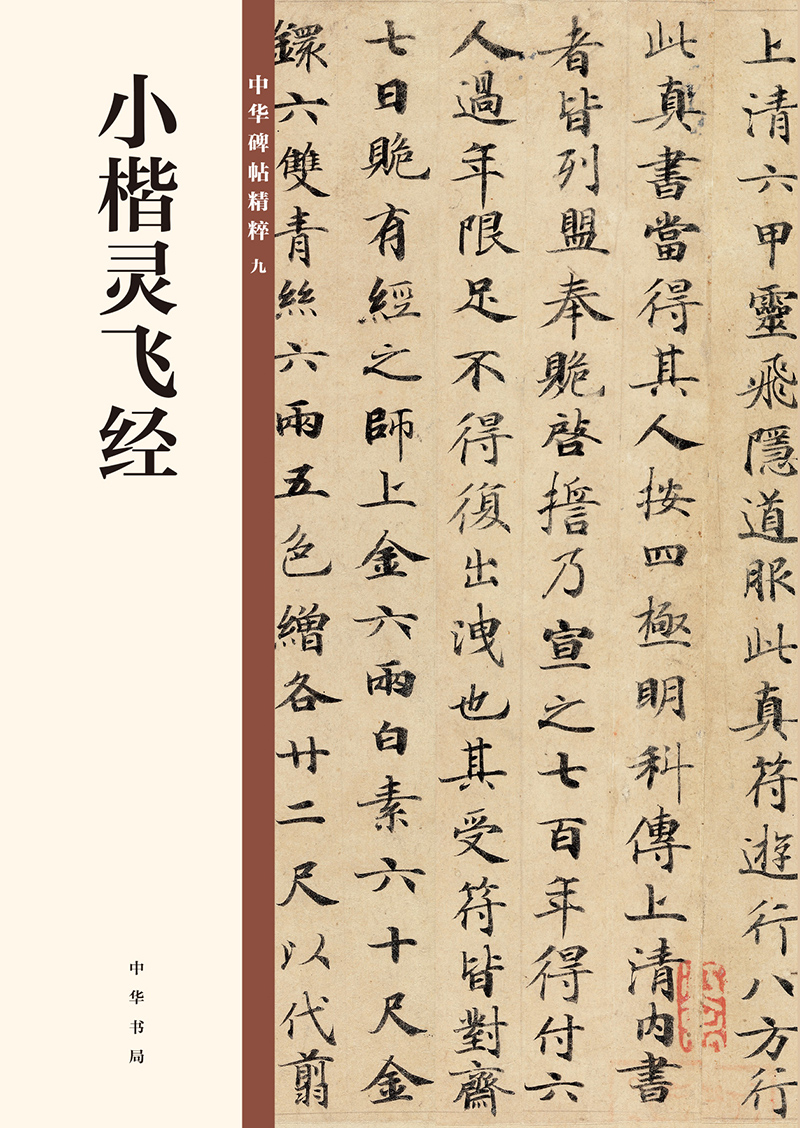 小楷灵飞经
中华书局
中华碑帖精粹 九
上清六甲靈飛隱道服此真符遊行八方行
此真書當得其人按四極明科傳上清內書
者皆列盟奉貺啓擔乃宣之七百年得付六
人過年限足不得復出洩也其受符皆對齋
七日貺有經之師上金六兩白素六十尺金
鐶六雙青絲六兩五色繒各廿二尺以代翦